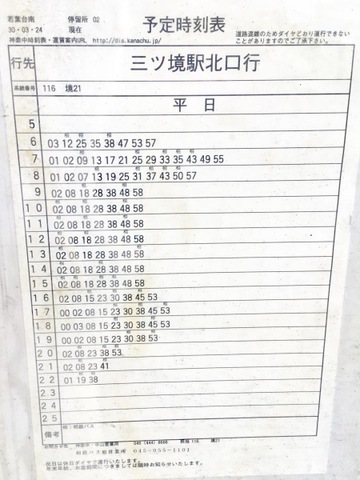 若葉台南 停留所 02
30・03・24 現在
神奈中時刻表・運賃案内URL http://dia.kanachu.jp/
予定時刻表
道路混雑のためダイヤどおり運行できない
ことがありますのでご了承下さい。
行先 三ツ境駅北口行
系統番号 116 境21
平日
5
6 03 12 25 35 38 47 53 57
7 01 02 09 13 17 21 25 29 33 35 43 49 55
8 01 02 07 13 19 25 31 37 43 50 57
9 02 08 18 28 38 48 58
10 02 08 18 28 38 48 58
11 02 08 18 28 38 48 58
12 02 08 18 28 38 48 58
13 02 08 18 28 38 48 58
14 02 08 18 28 38 48 58
15 02 08 18 28 38 48 58
16 02 08 15 23 30 38 45 53
17 00 02 08 15 23 30 38 45 53
18 00 03 08 15 23 30 38 45 53
19 00 02 08 15 23 30 38 53
20 02 08 23 38 53
21 02 08 23 41
22 01 19 38
23
24
25
備考 相：相鉄バス
相鉄バス旭営業所 045-955-1101
祝日は休日ダイヤで運行いたします。